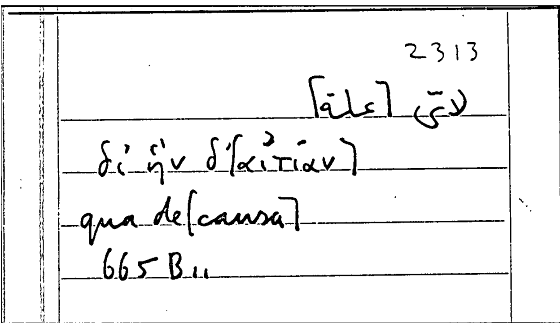 2313
لأيّ [علة]
δι' ἣν δ' [αἰτίαν]
qua de [causa]
665 B 11